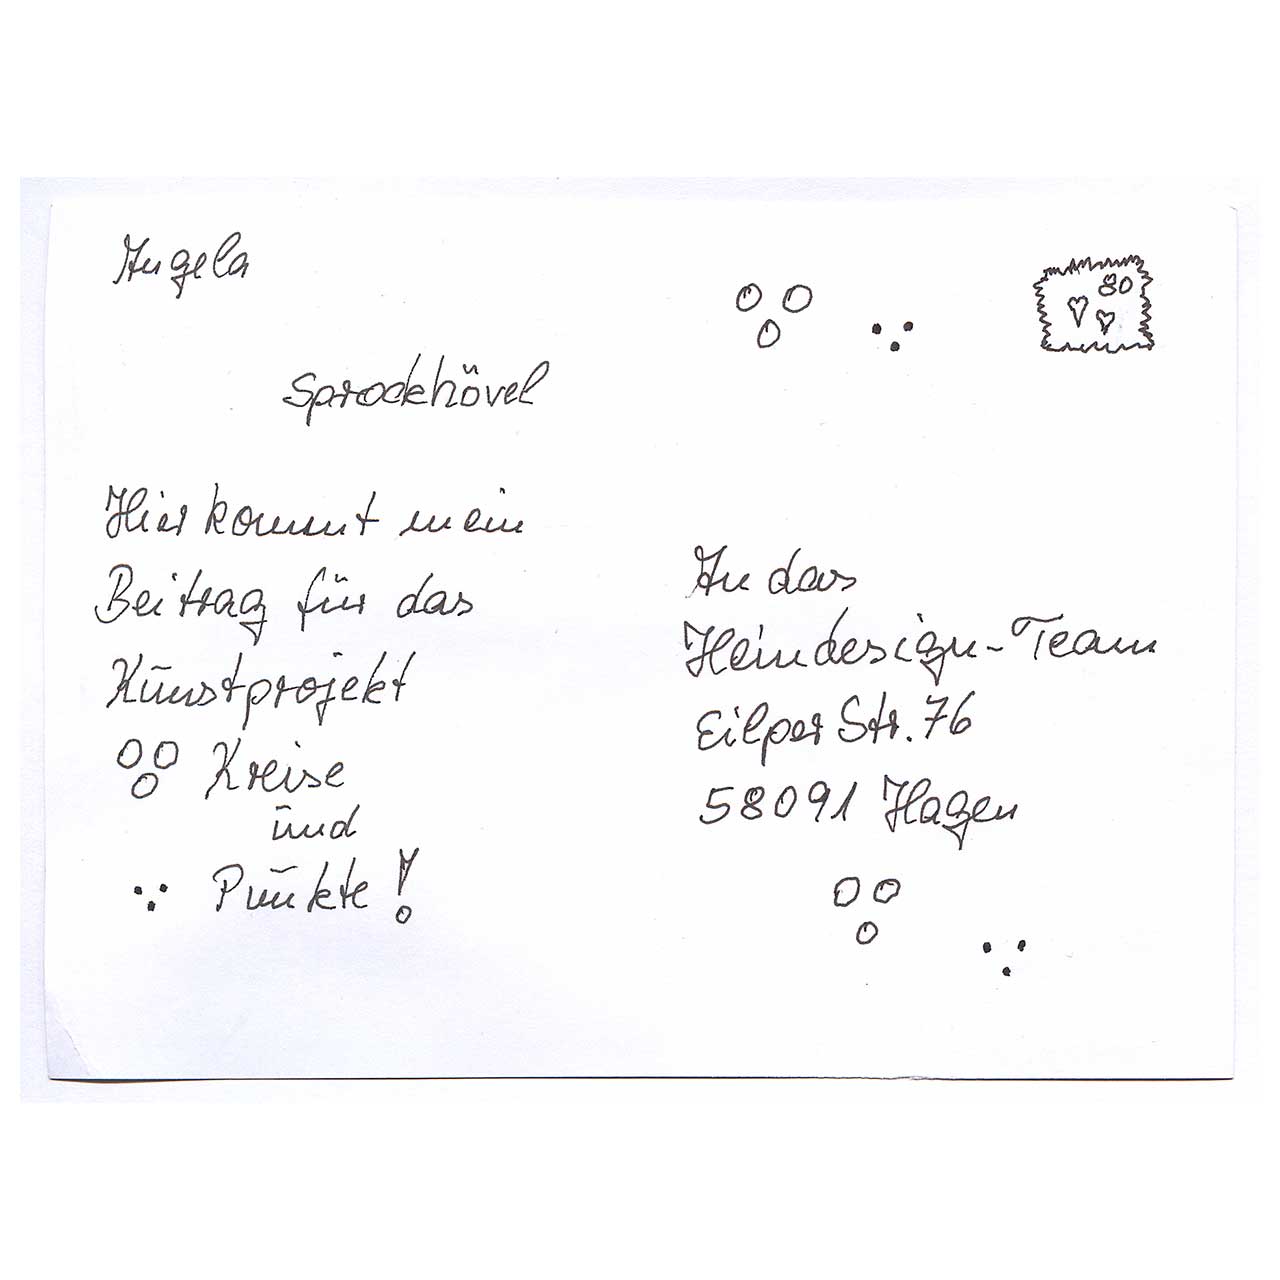 Angela
Sprockhövel
80
Hier kommt mein
Beitrag für das
Kunstprojekt
Kreise
und
Punkte!
An das
Heindesign-Team
Eilper Str. 76
58091 Hagen